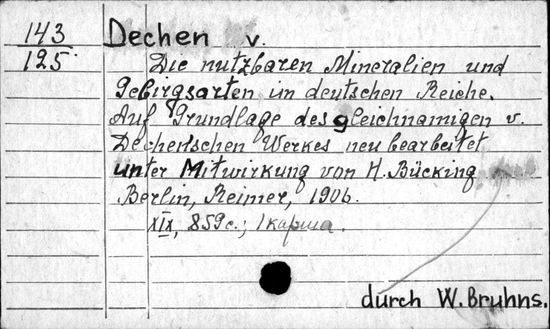 143
125
Dechen v.
Die nutzbaren Mineralien und
Gebirgsarten im deutschen Reiche.
Auf Grundlage des gleichnamigen v.
Dechen'schen Werkes neu bearbeitet
unter Mitwirkung von H. Bücking
Berlin, Reimer, 1906.
XIX, 859с.; 1 карта.
durch W. Bruhns.